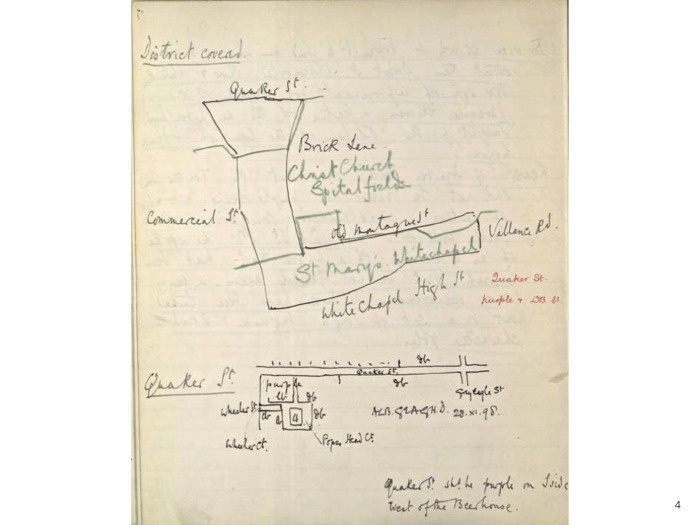 District covered
Quaker St.
Brick Lane.
Christ Church
Spitalfields
Commercial St
Old Montague St
Vallance Rd.
St Marys. Whitechapel
White Chapel High St
Quaker St.
purple & DB
Quaker St.
db
Quaker St.
purple
db
lb
db
db
Wheeler St
Grey Eagle St
Wheeler Ct.
Popes Head Ct.
28.xi.98.
Quaker St. shd be purple on S side
West of the Beerhouse.
4